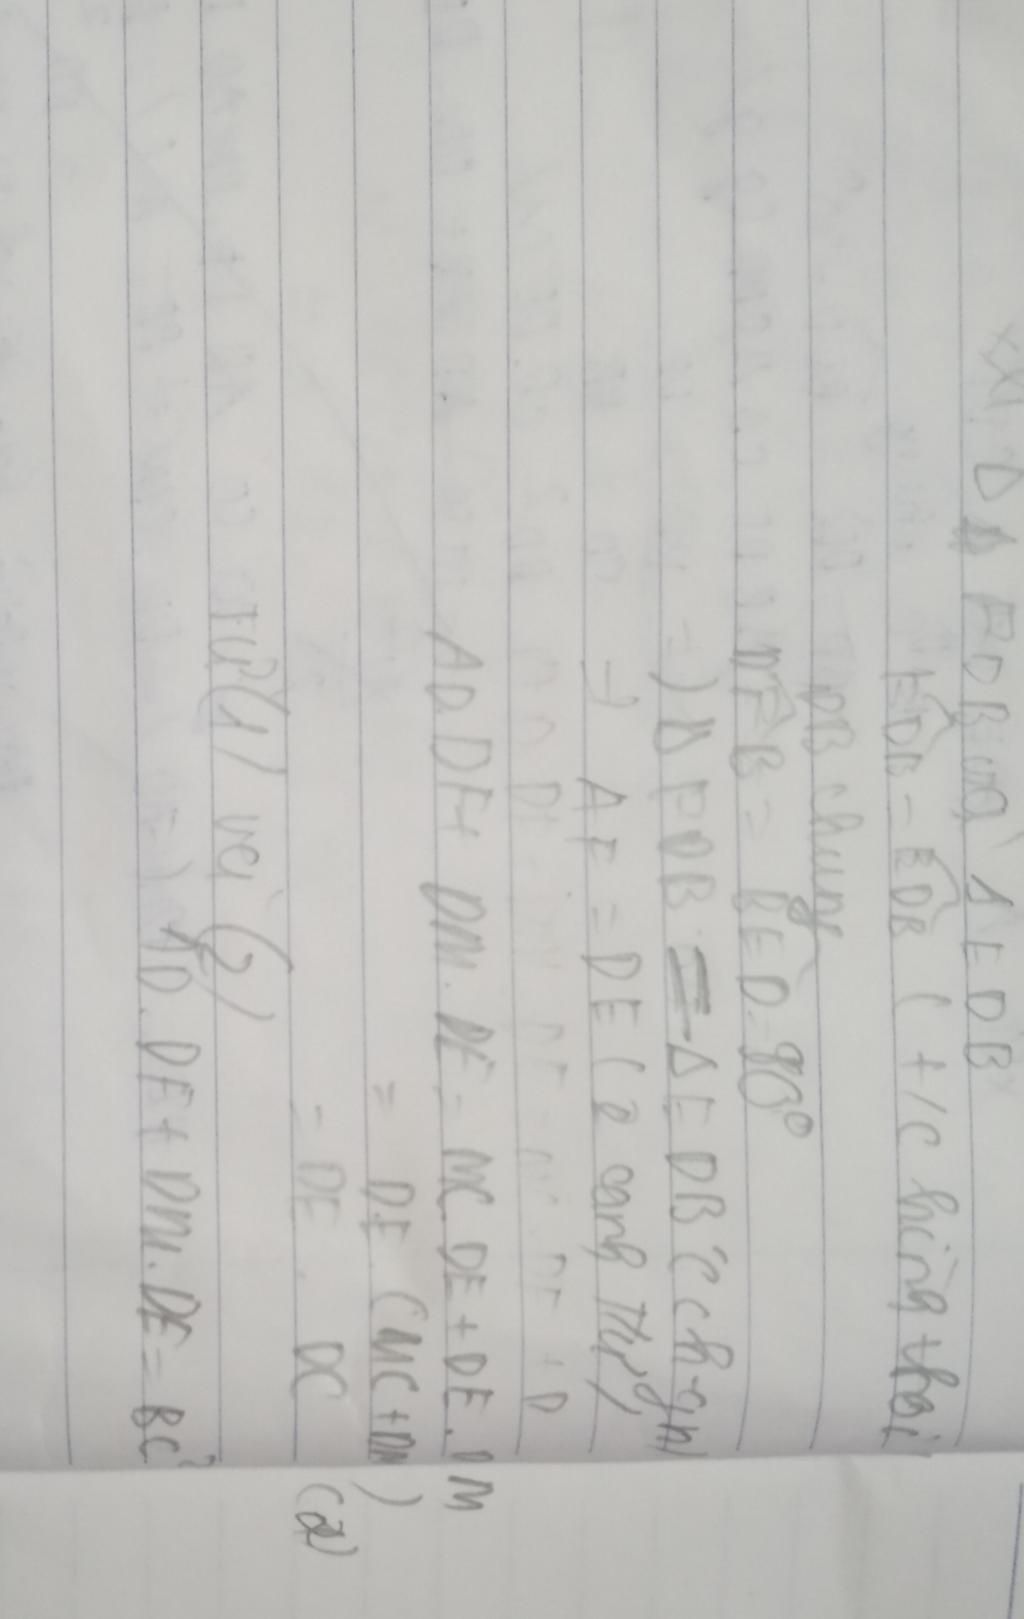 Xét Δ FDB và Δ EDB
FDB = EDB (t/c hình thoi
DB chung
DFB = BED = 90°
→) Δ FDB = Δ EDB (ch-gn)
→) AF = DE (2 cạnh TƯ)
AD.DF+ DM.DE = MC.DE + DE.DM
= DE (MC + DM)
= DE . DC (2)
Từ (1) và (2)
=) AD.DF + DM.DE = BC²